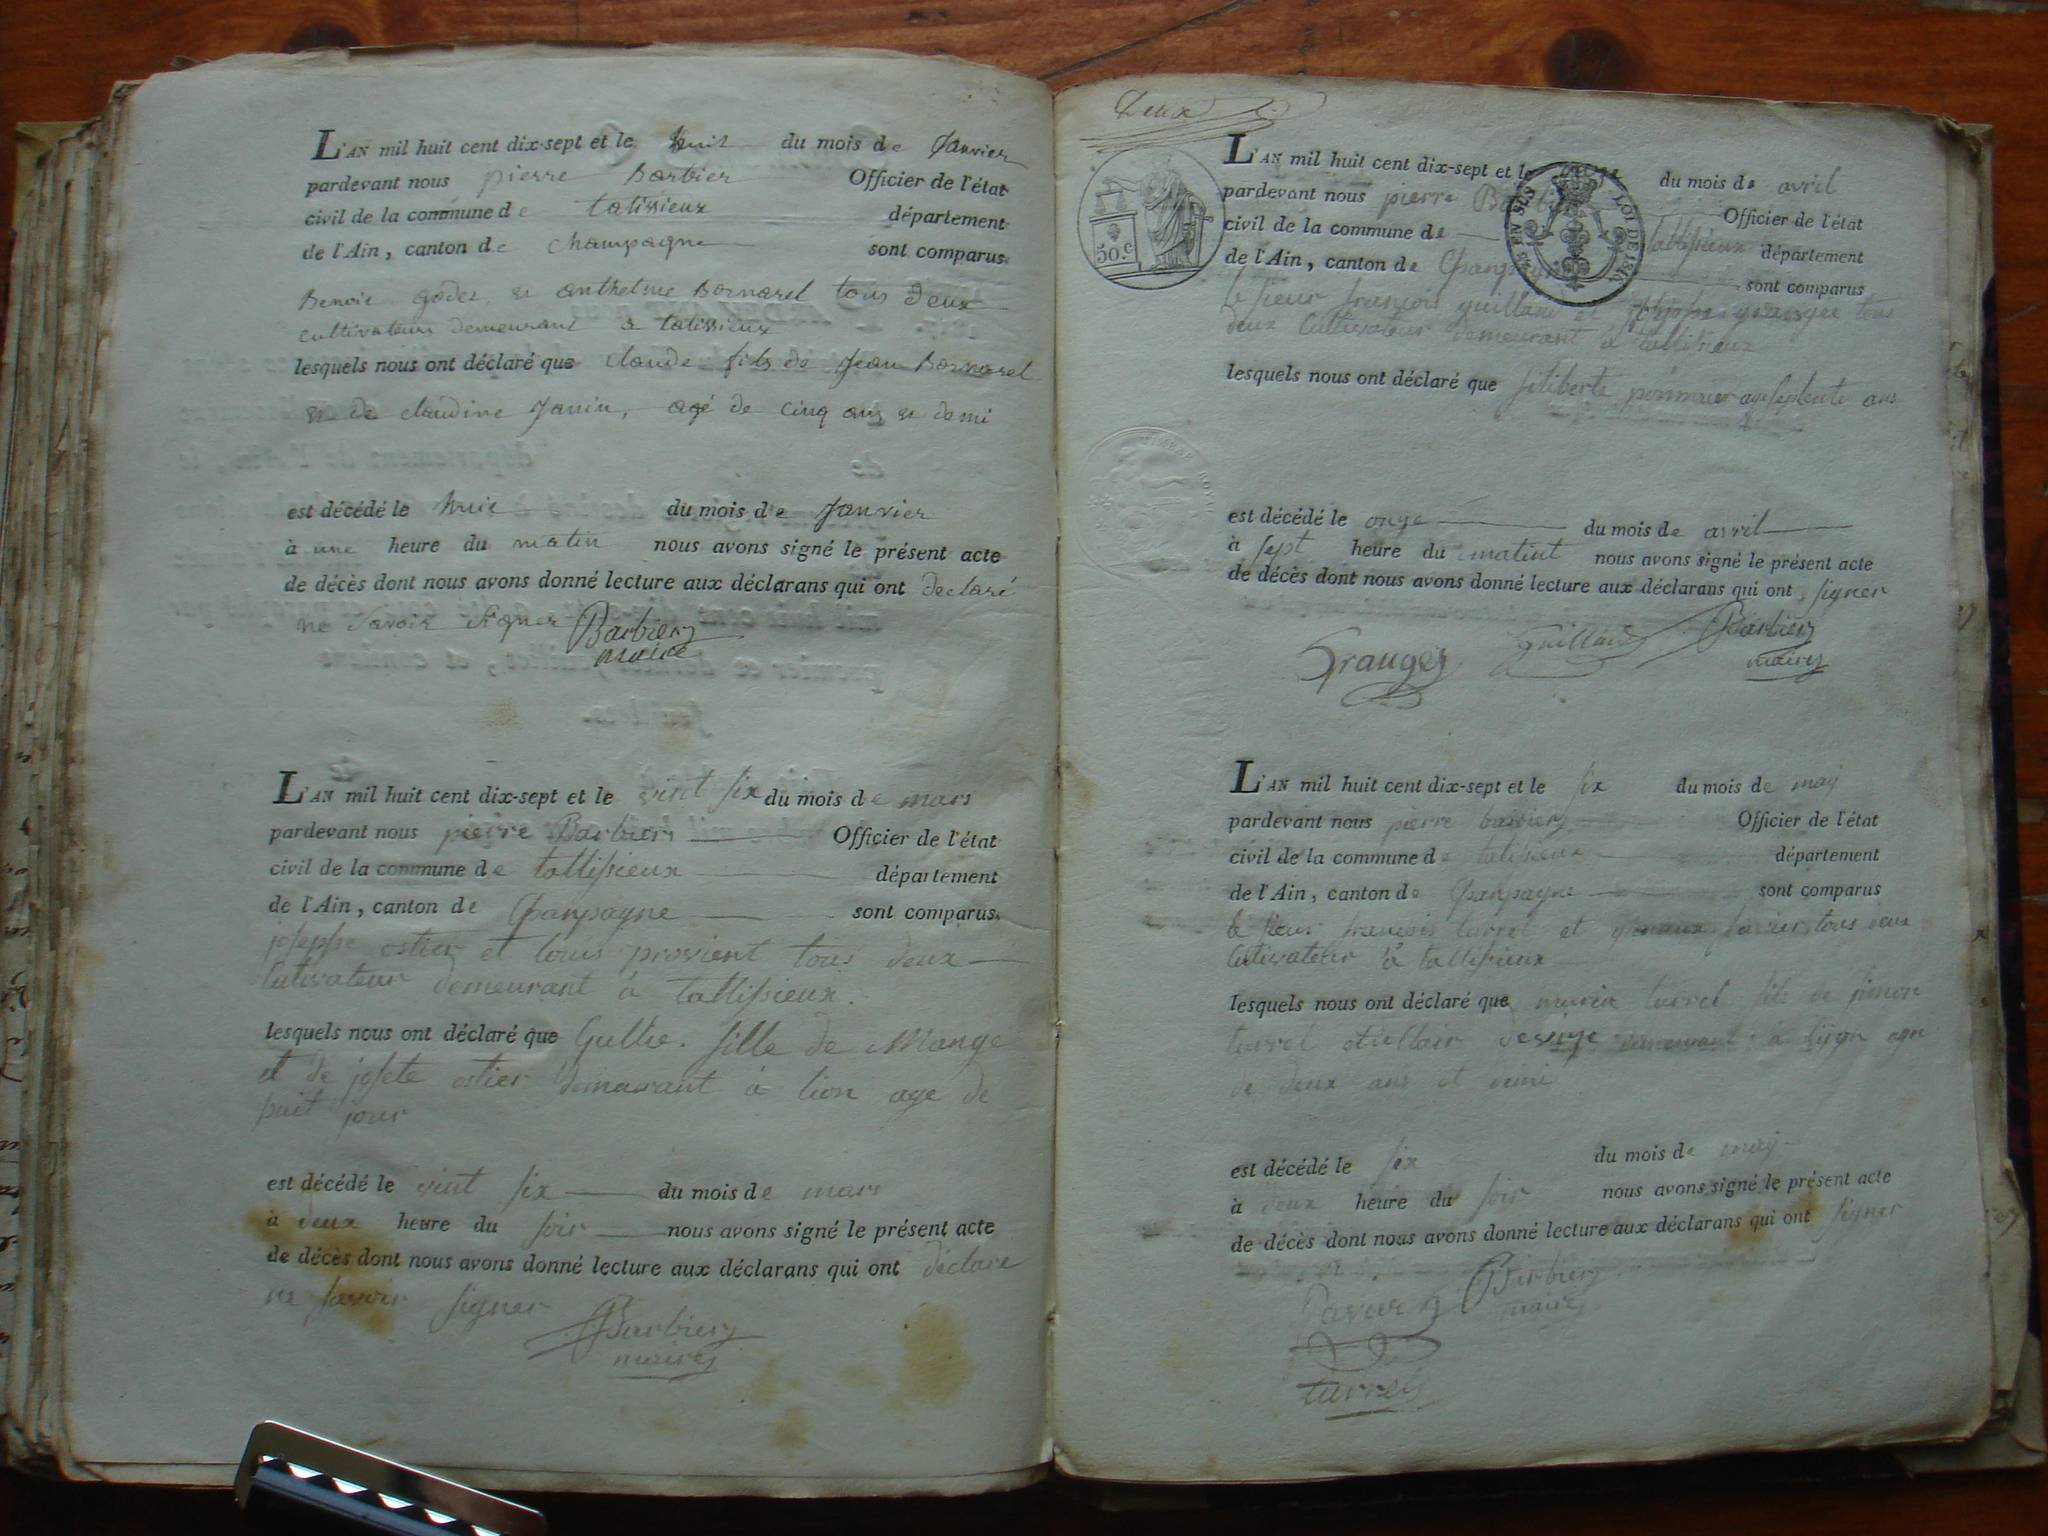 L'AN mil huit cent dix-sept et le huit du mois de Janvier
pardevant nous pierre Barbier Officier de l'état
civil de la commune de talissieux département
de l'Ain, canton de Champagne sont comparus
Benoit godet et anthelme Bornarel tous deux
cultivateurs demeurant a talissieux
lesquels nous ont déclaré que claude fils de Jean Bornarel
et de claudine Janin, agé de cinq ans et demi
est décédé le huit du mois de Janvier
à une heure du matin nous avons signé le présent acte
de décès dont nous avons donné lecture aux déclarans qui ont declaré
ne savoir signer Barbier
maire
L'AN mil huit cent dix-sept et le vint six du mois de mars
pardevant nous pierre Barbier Officier de l'état
civil de la commune de tallissieux département
de l'Ain, canton de Chanpagne sont comparus
josephe ostier et louis provient tous deux
cutivateur demeurant à tallissieux.
lesquels nous ont déclaré que fille de Mange
et de josete ostier demarant à lion age de
huit jour
est décédé le vint six du mois de mars
à deux heure du soir nous avons signé le présent acte
de décès dont nous avons donné lecture aux déclarans qui ont déclare
ne savoir signer Barbier
maire
Deux
50.c
L'AN mil huit cent dix-sept et le du mois de avril
pardevant nous pierre Officier de l'état
civil de la commune de tallissieux département
de l'Ain, canton de sont comparus
LOI DE 1816
le sieur françois guilland et tous
deux cultivateur demeurant à tallissieux
lesquels nous ont déclaré que filiberte age septente ans
TIMBRE ROYAL
est décédé le onze du mois de avril
à sept heure du matint nous avons signé le présent acte
de décès dont nous avons donné lecture aux déclarans qui ont signer
Granger Guilland Barbier
maire
L'AN mil huit cent dix-sept et le six du mois de may
pardevant nous pierre barbier Officier de l'état
civil de la commune de talissieux département
de l'Ain, canton de Chanpagne sont comparus
le sieur françois turrel et tous deux
cutivateur à tallissieux
lesquels nous ont déclaré que turrel fils de simon
turrel demeurant à age
de deux ans et demi
est décédé le six du mois de may
à deux heure du soir nous avons signé le présent acte
de décès dont nous avons donné lecture aux déclarans qui ont signer
Barbier
maire
turrel